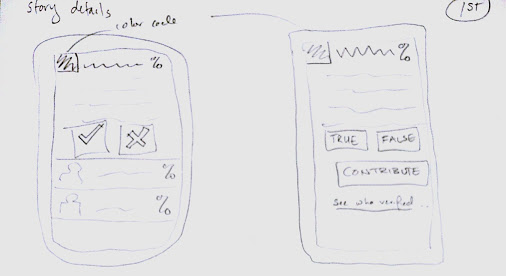 story details
color code
1ST
%
%
%
%
TRUE
FALSE
CONTRIBUTE
see who verified...